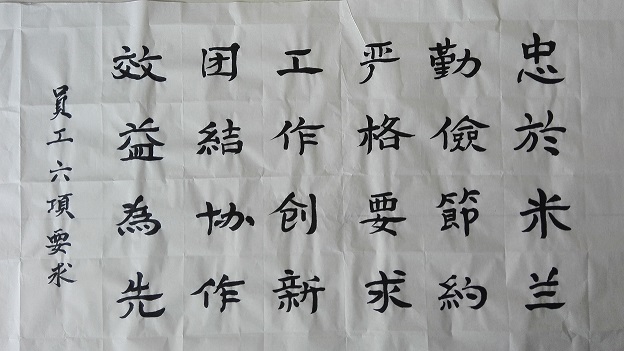 忠於米兰
勤儉節約
严格要求
工作创新
团結协作
效益為先
員工六項要求